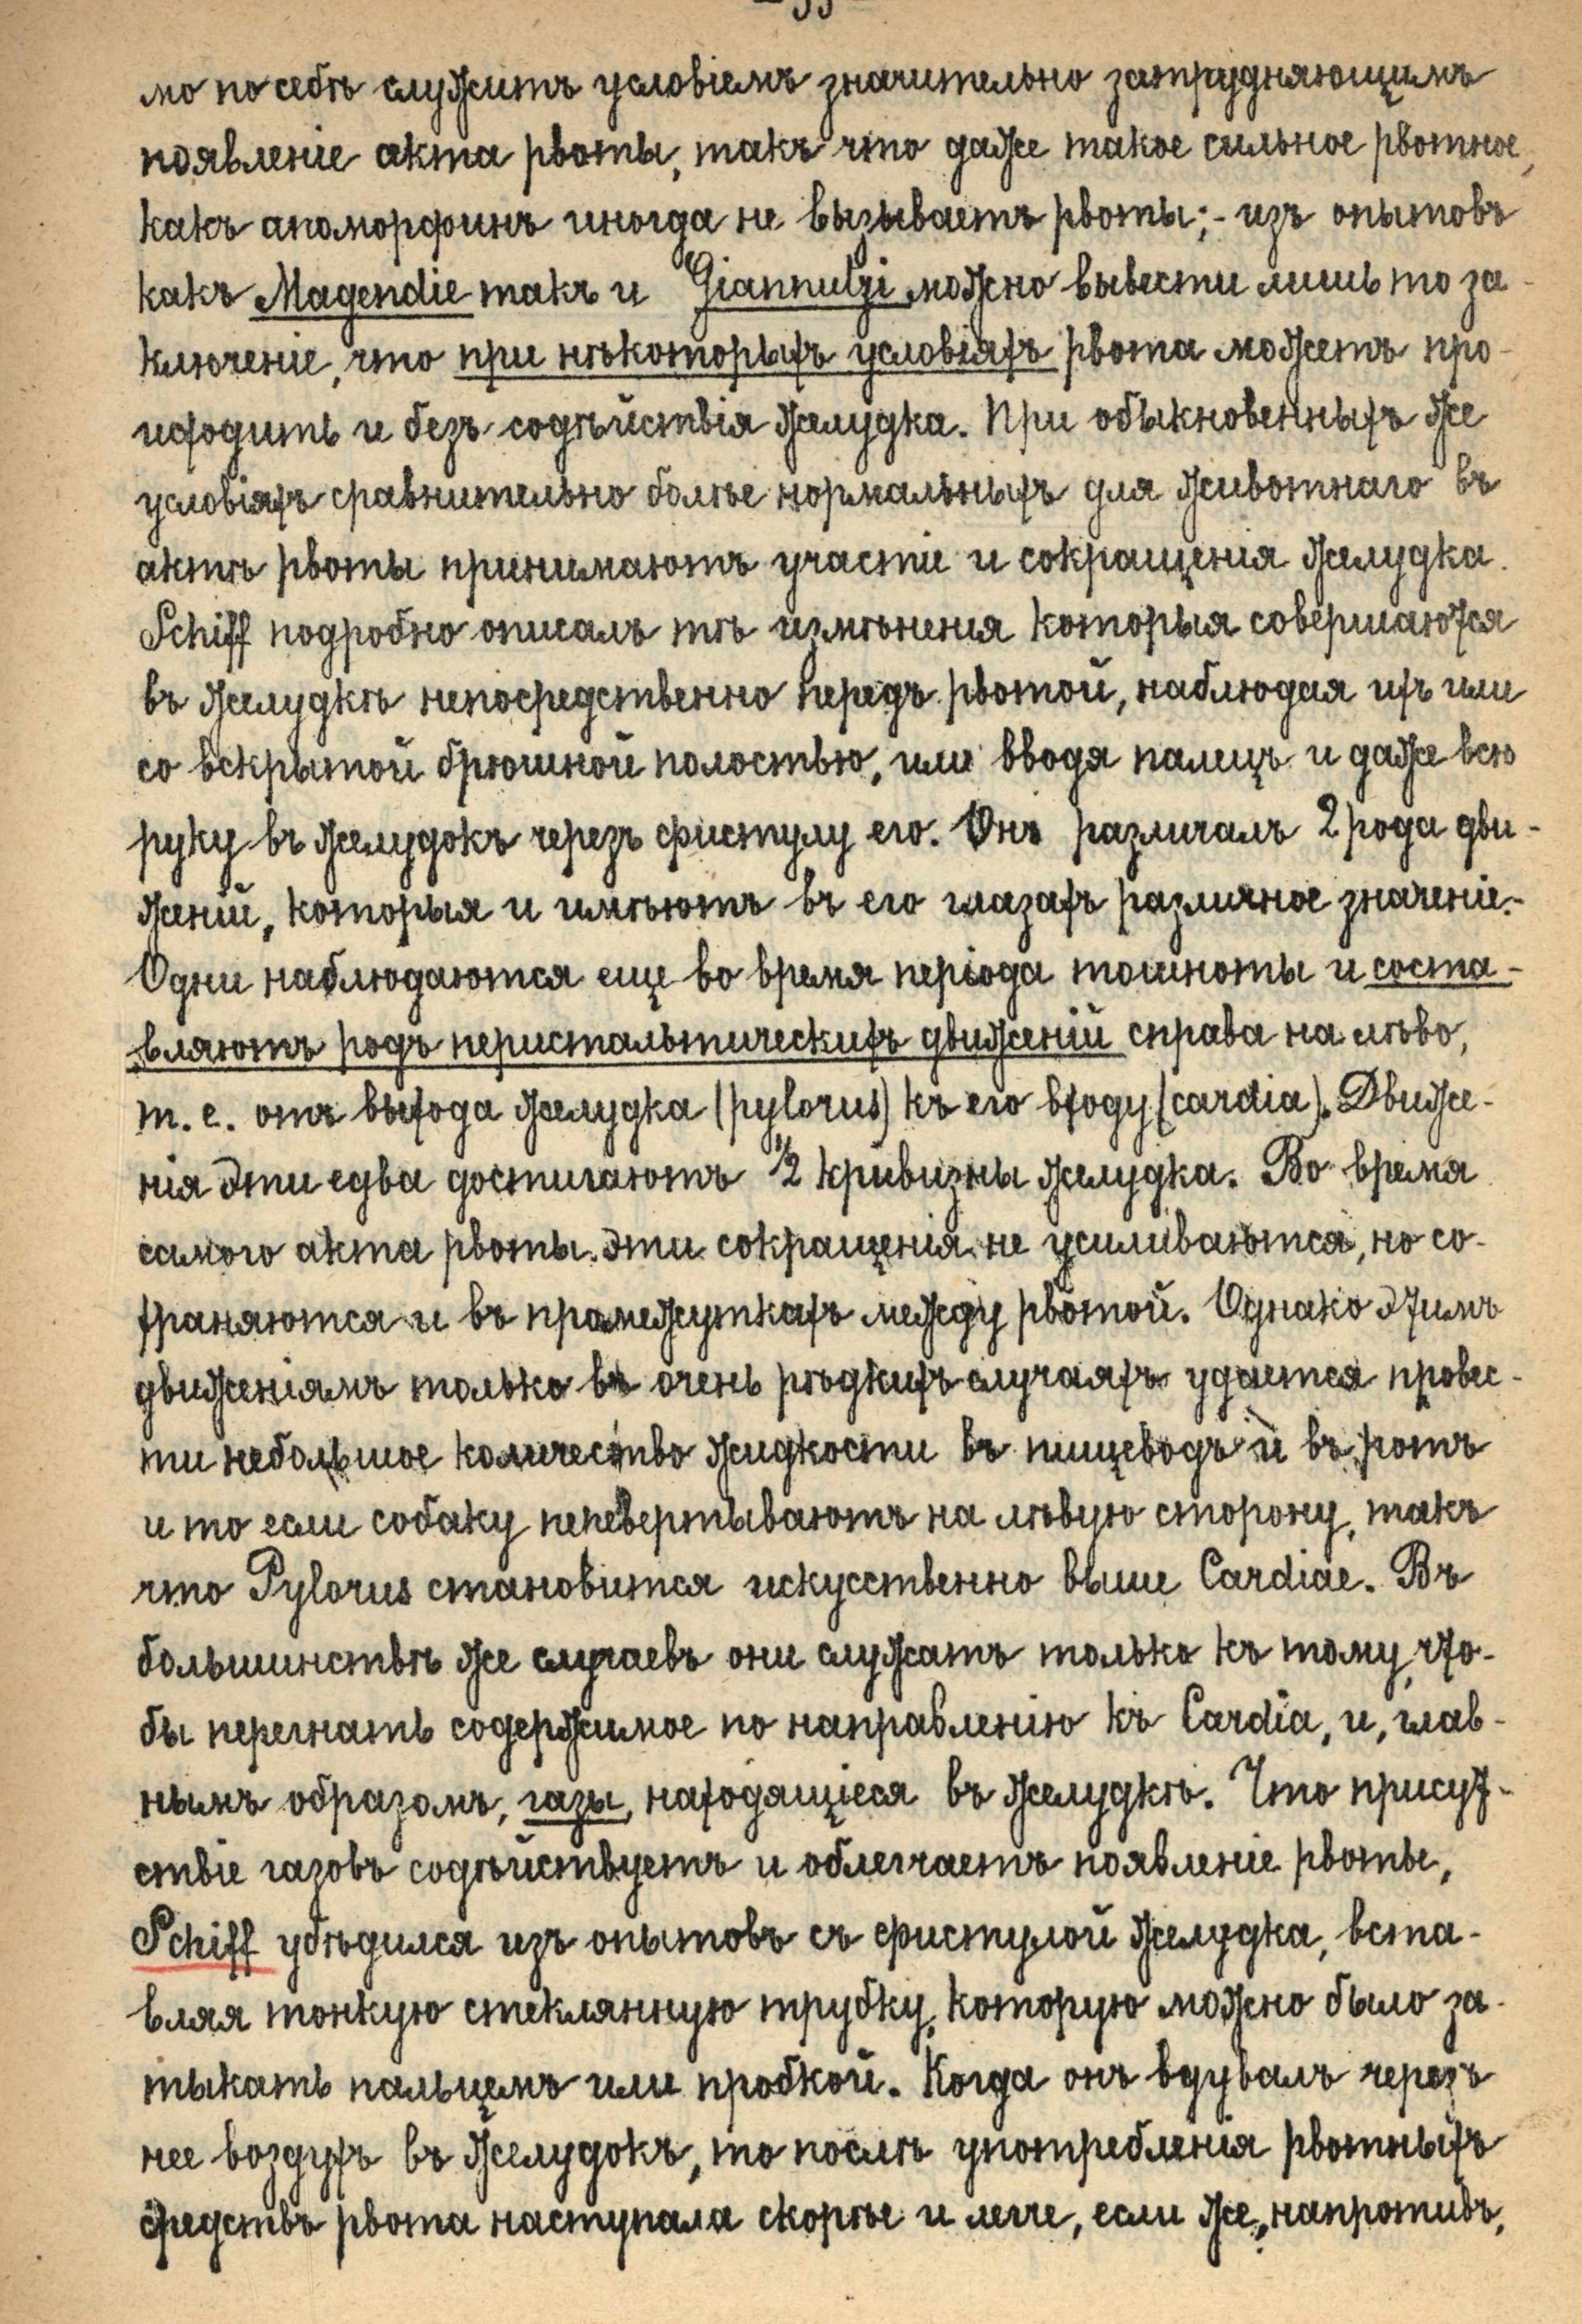 мо по себѣ служитъ условіемъ значительно затрудняющимъ
появленіе акта рвоты, такъ что даже такое сильное рвотное,
какъ апоморфинъ иногда не вызываетъ рвоты;- изъ опытовъ
какъ Magendie такъ и Giannulzi можно вывести лишь то за-
ключеніе, что при нѣкоторыхъ условіяхъ рвота можетъ про-
исходить и безъ содѣйствія желудка. При обыкновенныхъ же
условіяхъ сравнительно болѣе нормальныхъ для животнаго въ
актѣ рвоты принимаютъ участіе и сокращенія желудка.
Schiff подробно описалъ тѣ измѣненія которыя совершаются
въ желудкѣ непосредственно передъ рвотой, наблюдая ихъ или
со вскрытой брюшной полостью, или вводя палецъ и даже всю
руку въ желудокъ черезъ фистулу его. Онъ различалъ 2 рода дви-
женій, которыя и имѣютъ въ его глазахъ различное значеніе.-
Одни наблюдаются еще во время періода тошноты и соста-
вляютъ родъ перистальтическихъ движеній справа на лѣво,
т. е. отъ выхода желудка (pylorus) къ его входу (cardia). Движе-
нія эти едва достигаютъ 1/2 кривизны желудка. Во время
самого акта рвоты эти сокращенія не усиливаются, но со-
храняются и въ промежуткахъ между рвотой. Однако этимъ
движеніямъ только въ очень рѣдкихъ случаяхъ удается провес-
ти небольшое количество жидкости въ пищеводъ и въ ротъ
и то если собаку перевертываютъ на лѣвую сторону, такъ
что Pylorus становится искусственно выше Cardiae. Въ
большинствѣ же случаевъ они служатъ только къ тому, что-
бы перегнать содержимое по направленію къ Cardia, и, глав-
нымъ образомъ, газы, находящіеся въ желудкѣ. Что присут-
ствіе газовъ содѣйствуетъ и облегчаетъ появленіе рвоты,
Schiff убѣдился изъ опытовъ съ фистулой желудка, вста-
вляя тонкую стеклянную трубку, которую можно было за-
тыкать пальцемъ или пробкой. Когда онъ вдувалъ черезъ
нее воздухъ въ желудокъ, то послѣ употребленія рвотныхъ
средствъ рвота наступала скорѣе и легче, если же, напротивъ,